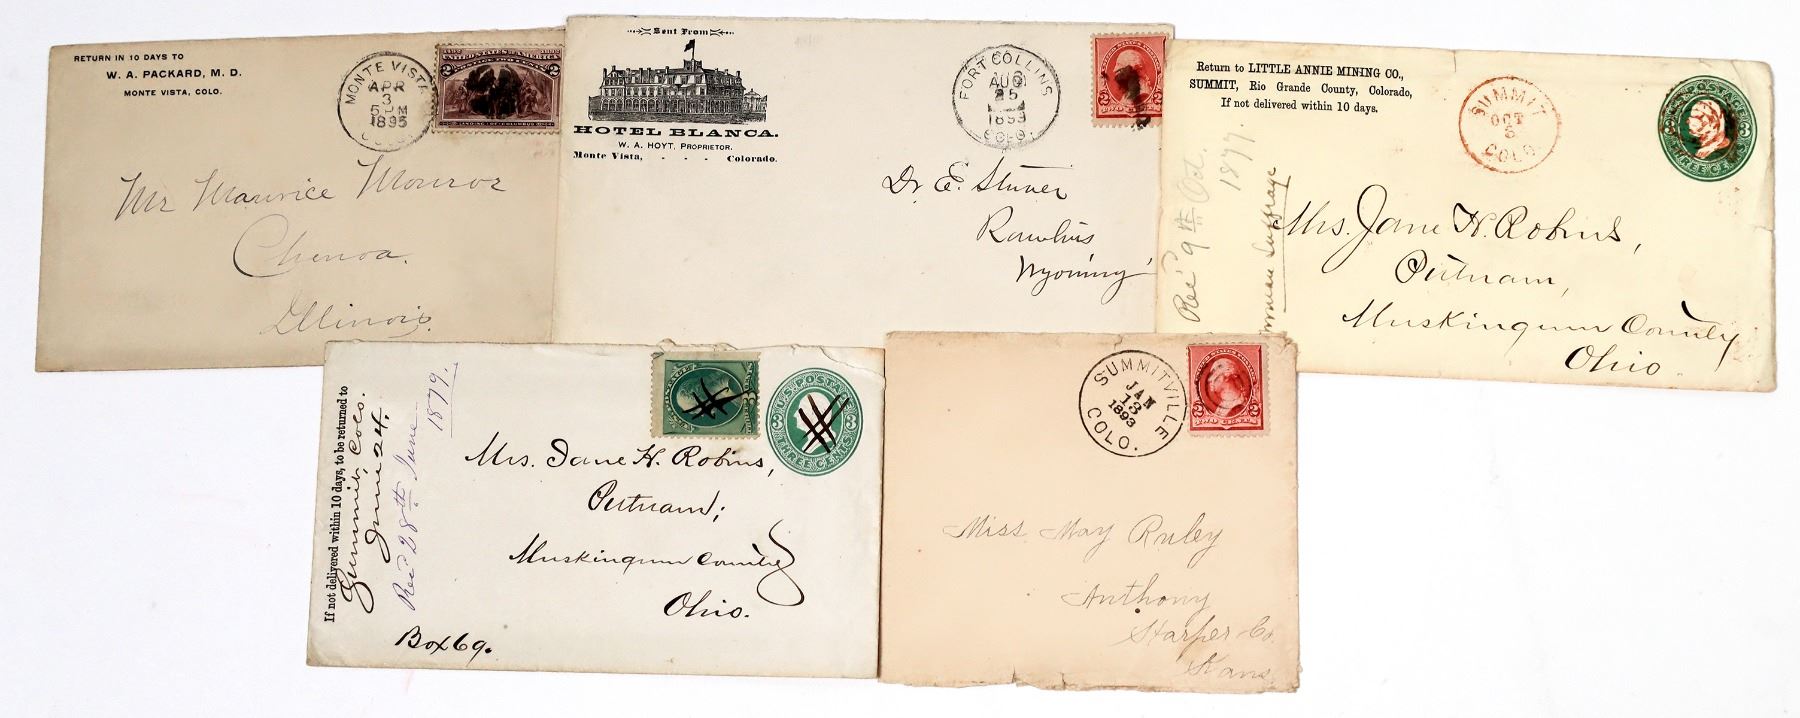 RETURN IN 10 DAYS TO
W. A. PACKARD, M. D.
MONTE VISTA, COLO.
MONTE VISTA
APR
3
1895
COLO.
1492 1892
UNITED STATES OF AMERICA
2 2
LANDING OF COLUMBUS
Mr Maurice Monroe
Chenoa.
Illinois.
Sent From
HOTEL BLANCA.
W. A. HOYT, PROPRIETOR.
Monte Vista, - - - Colorado.
FORT COLLINS
AUG
25
1893
COLO.
2 2
TWO CENTS
Dr E. Stuver
Rawlins
Wyoming
Return to LITTLE ANNIE MINING CO.,
SUMMIT, Rio Grande County, Colorado,
If not delivered within 10 days.
SUMMIT
OCT
COLO.
U.S. POSTAGE
3 3
THREE CENTS
Rec'd 9th Oct.
1877.
Woman Suffrage
Mrs. Jane H. Robins,
Putnam,
Muskingum County
Ohio.
If not delivered within 10 days, to be returned to
Summit, Colo.
June 24,
Rec'd 28th June
1879.
U.S. POSTAGE
3 3
THREE CENTS
Mrs. Jane H. Robins,
Putnam;
Muskingum County
Ohio.
Box 69.
SUMMITVILLE
JAN
13
1893
COLO.
2 2
TWO CENTS
Miss May Ruley
Anthony
Harper Co.
Kans